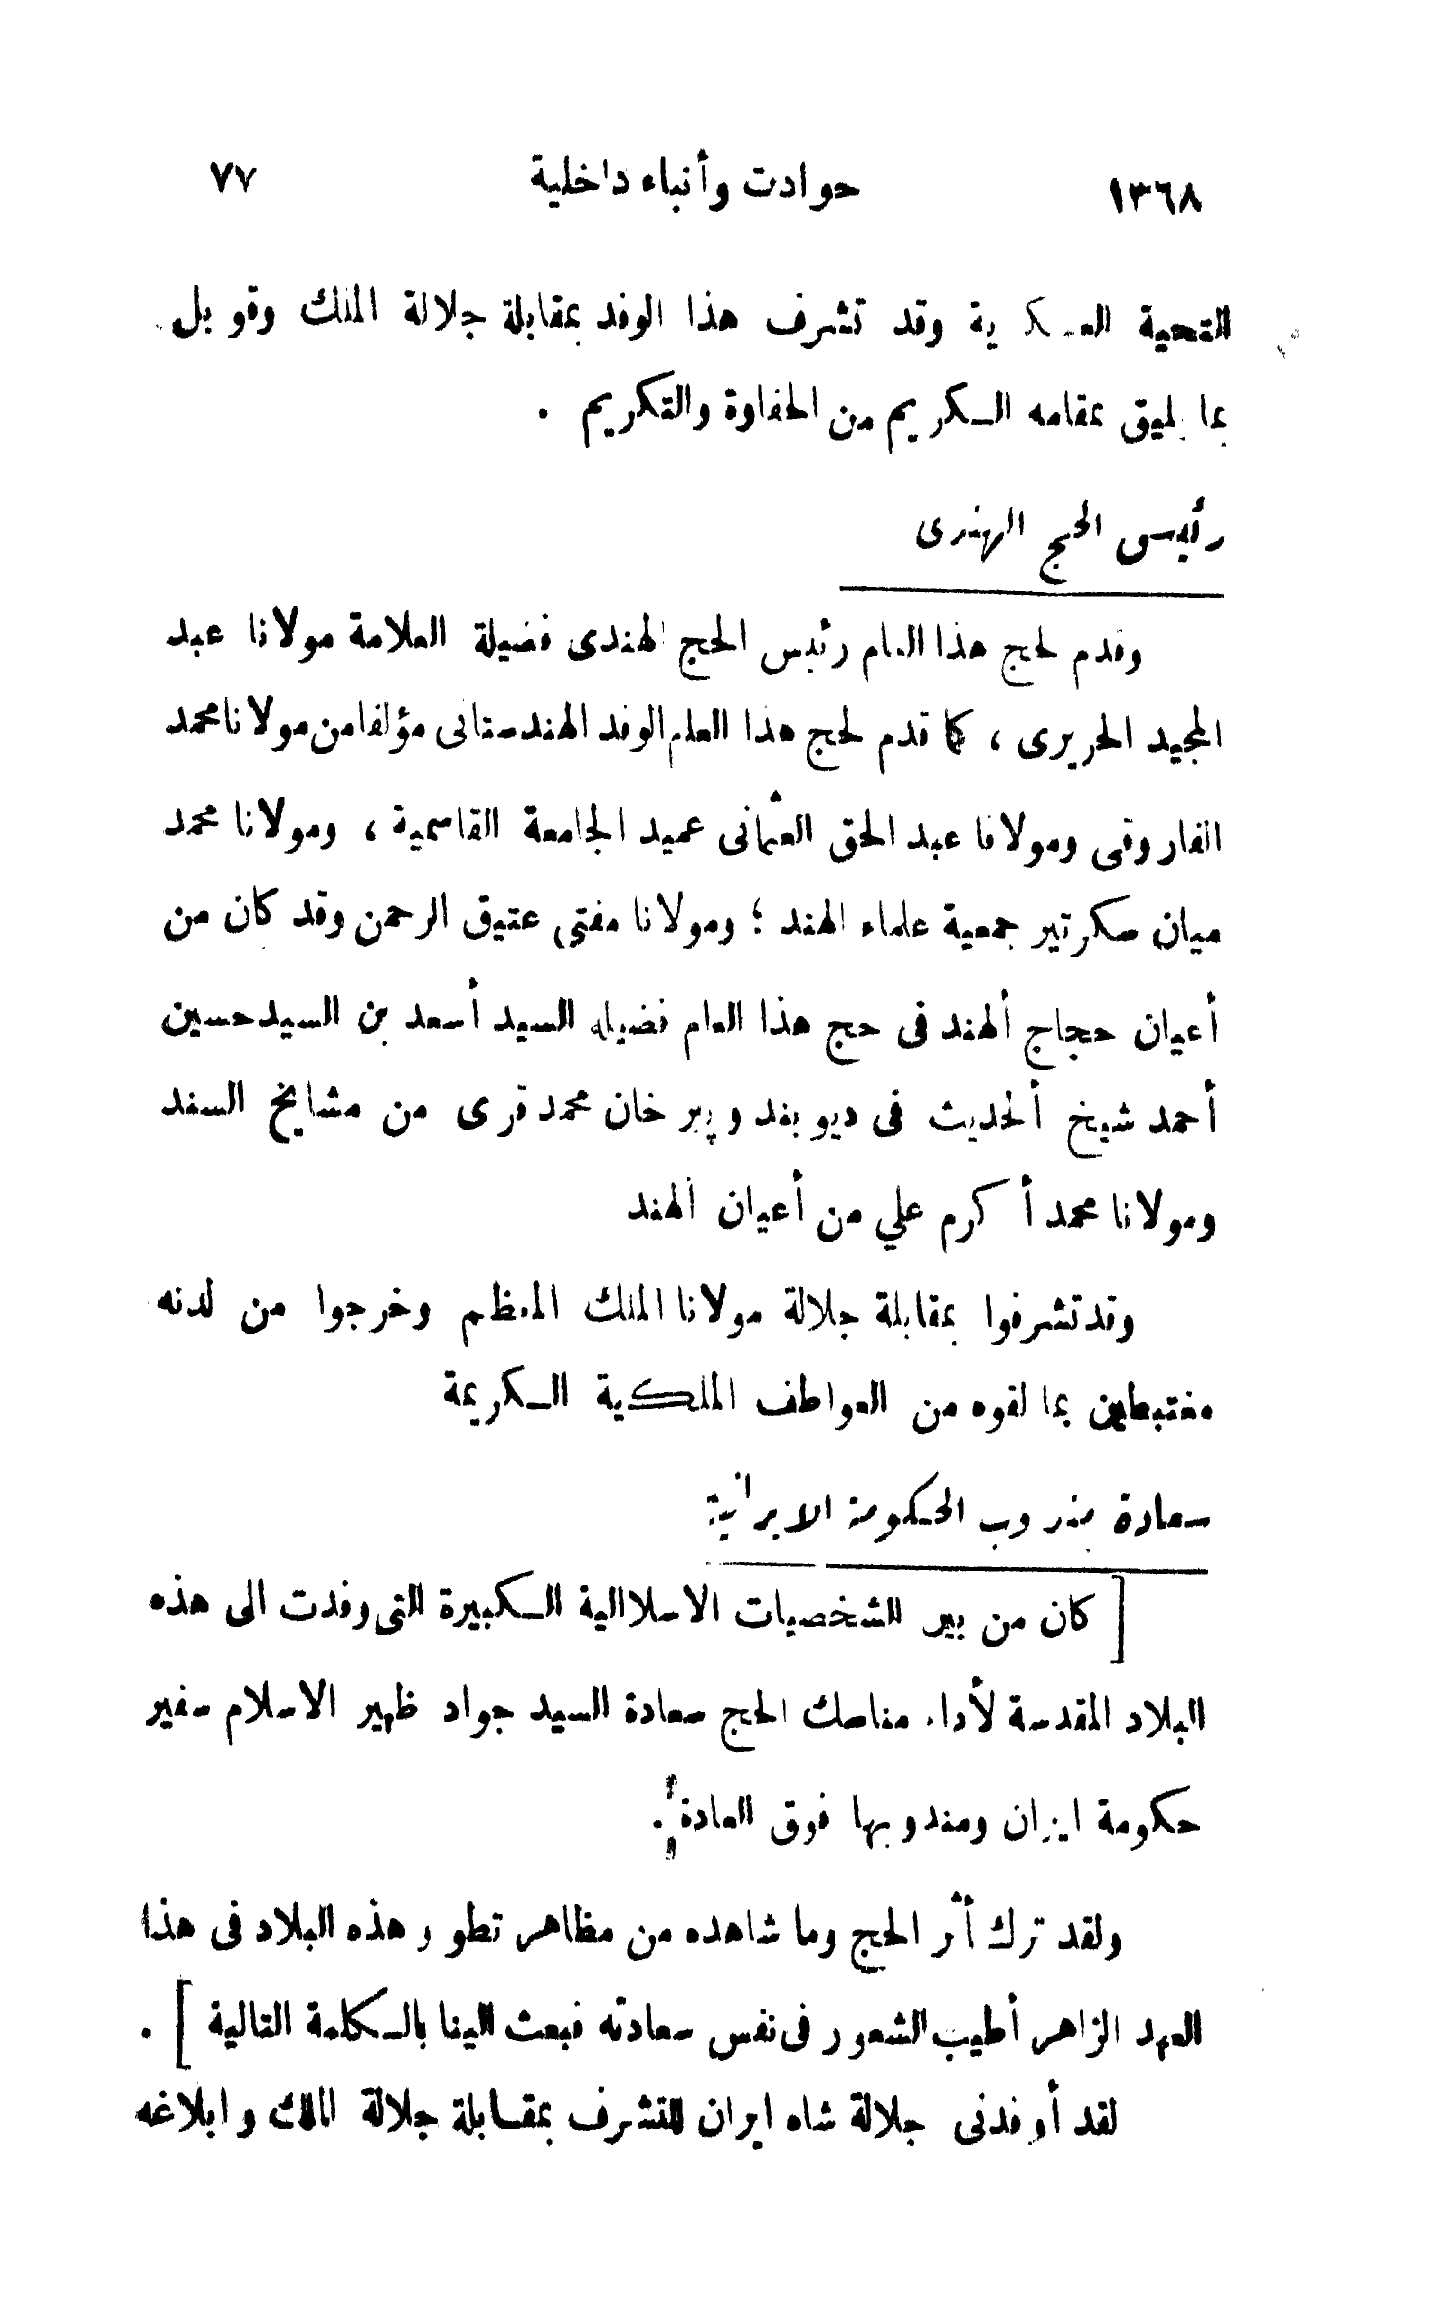 ١٣٦٨ حوادث وأنباء داخلية ٧٧
التحية العسكرية وقد تشرف هذا الوفد بمقابلة جلالة الملك وقوبل
بما يليق بمقامه الكريم من الحفاوة والتكريم .
رئيس الحج الهندى
وقدم لحج هذا العام رئيس الحج الهندى فضيلة العلامة مولانا عبد
المجيد الحريرى ، كما قدم لحج هذا العام الوفد الهندستانى مؤلفا من مولانا محمد
الفاروقى ومولانا عبد الحق العثمانى عميد الجامعة القاسمية ، ومولانا محمد
ميان سكرتير جمعية علماء الهند ؛ ومولانا مفتى عتيق الرحمن وقد كان من
أعيان حجاج ألهند فى حج هذا العام فضيلة السيد أسعد بن السيد حسين
أحمد شيخ ألحديث فى ديوبند وپير خان محمد قرى من مشايخ السند
ومولانا محمد أكرم علي من أعيان ألهند
وقد تشرفوا بمقابلة جلالة مولانا الملك المعظم وخرجوا من لدنه
مغتبطين بما لقوه من العواطف الملكية الكريمة
سعادة مندوب الحكومة الايرانية
[ كان من بين الشخصيات الاسلاالية الكبيرة التى وفدت الى هذه
البلاد المقدسة لأداء مناسك الحج سعادة السيد جواد ظهير الاسلام سفير
حكومة ايران ومندوبها فوق العادة .
ولقد ترك أثر الحج وما شاهده من مظاهر تطور هذه البلاد فى هذا
العهد الزاهر أطيب الشعور فى نفس سعادته فبعث الينا بالكلمة التالية ] .
لقد أوفدنى جلالة شاه ايران للتشرف بمقابلة جلالة الملك وابلاغه